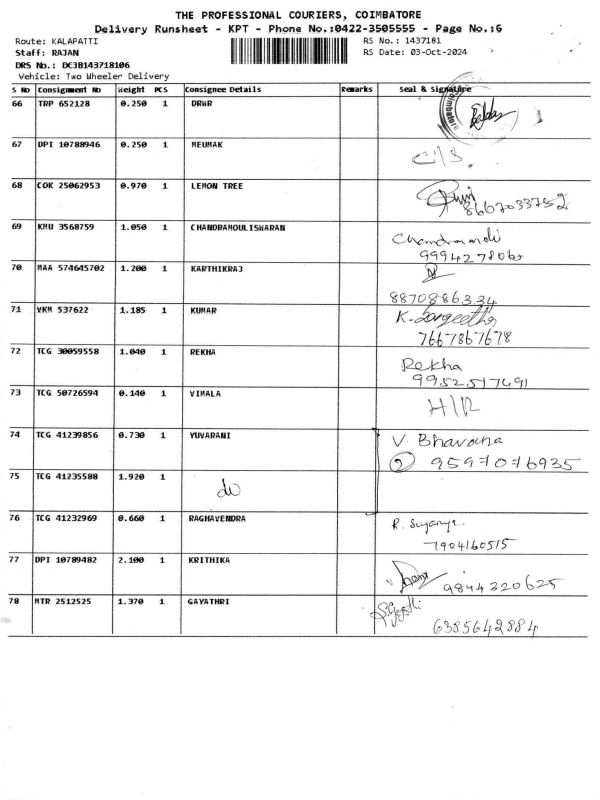 THE PROFESSIONAL COURIERS, COIMBATORE
Delivery Runsheet - KPT - Phone No.:0422-3505555 - Page No.:6
Route: KALAPATTI RS No.: 1437181
Staff: RAJAN RS Date: 03-Oct-2024
DRS No.: DC3B143718106
Vehicle: Two Wheeler Delivery
S No Consignment No Weight PCS Consignee Details Remarks Seal & Signature
66 TRP 652128 0.250 1 DRWR
67 DPI 10788946 0.250 1 MEUMAK
C/S
68 COK 25062953 0.970 1 LEMON TREE
8667033752
69 KMU 3568759 1.050 1 CHANDRAMOULISWARAN
Chandramoli
9994278065
70 MAA 574645702 1.200 1 KARTHIKRAJ
8870886334
71 VKM 537622 1.185 1 KUMAR
K. Sangeetha
7667867678
72 TCG 30059558 1.040 1 REKHA
Rekha
9952517691
73 TCG 50726594 0.140 1 VIMALA
H/R
74 TCG 41239856 0.730 1 YUVARANI
V. Bhavana
② 9597076935
75 TCG 41235588 1.920 1
do
76 TCG 41232969 0.660 1 RAGHAVENDRA
R. Suganya
7904160515
77 DPI 10789482 2.100 1 KRITHIKA
9844320625
78 MTR 2512525 1.370 1 GAYATHRI
6385642884